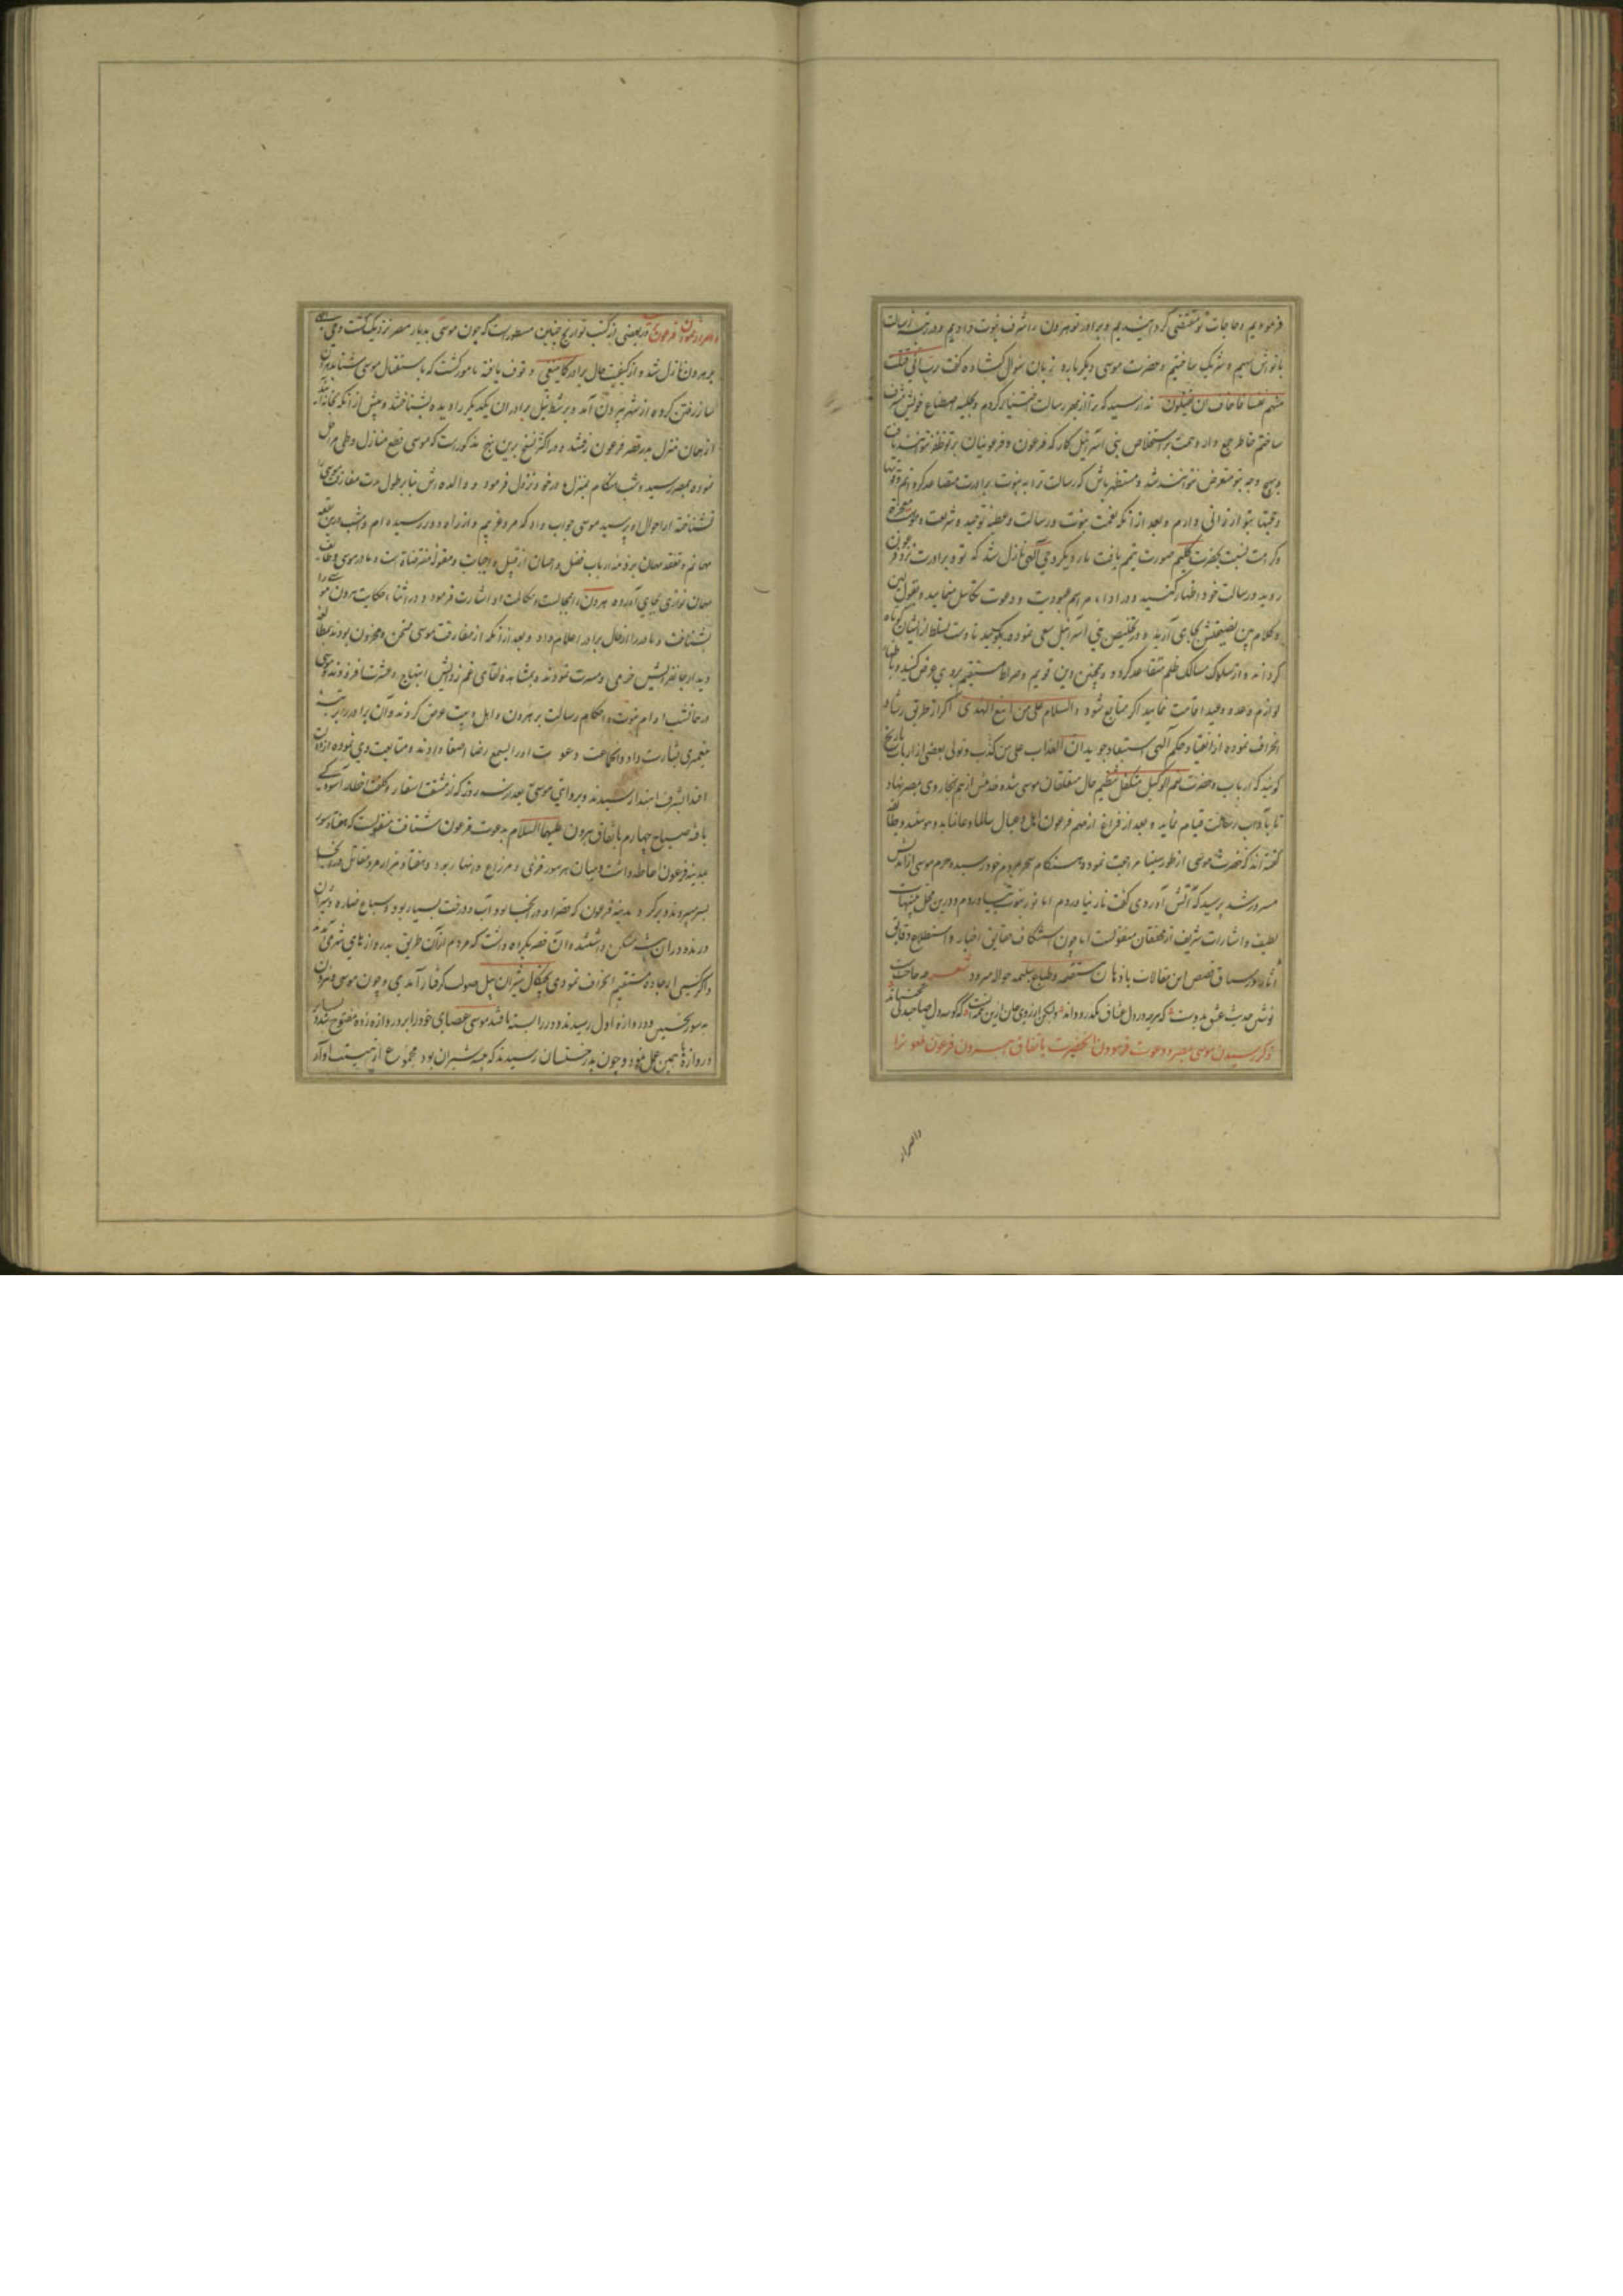 فرمودیم و حاجات تو مقتضی گردانیدیم و برادر تو هرون را شرف نبوت دادیم و در رتبه رسالت
با تواش سهیم و شریک ساختیم و حضرت موسی دیگر باره زبان سؤال گشاده گفت رب انی قتلت
منهم نفسا فاخاف ان یقتلون ندا رسید که ترا از بهر رسالت اختیار کردم و بحلیه اصطناع خویش مشرف
ساختم خاطر جمع دار و همت بر استخلاص بنی اسرائیل گمار که فرعون و فرعونیان بر تو ظفر نتوانند یافت
و بهیچ وجه بتو متعرض نتوانند شد و مستظهر باش که رسالت ترا به نبوت برادرت متصاعد کردانم
و بعد از آنکه نعمت نبوت و رسالت و عطیه توحید و شریعت و معجزه
و کرامت نسبت بحضرت کلیم صورت تتمیم یافت بار دیگر وحی آلهی نازل شد که تو و برادرت نزد فرعون
روید و رسالت خود اظهار کنید و در اداء مراسم عبودیت و دعوت تکاسل منمایید و بقول لین
و کلام نصیحتش بجای آرید و در تخلیص بنی اسرائیل سعی نموده بگویید تا دست تسلط از ایشان کوتاه
گرداند و از سلوک مسالک ظلم متقاعد گردد و همچنین دین قویم و صراط مستقیم بر وی عرض کنید
لوازم وعده و وعید اقامت نمایید اگر متابع شود و السلام علی من اتبع الهدی اگر از طریق رشاد
انحراف نموده از انقیاد حکم آلهی استبعاد جوید ان العذاب علی من کذب و تولی بعضی از ارباب تاریخ
گویند که حضرت نعم الوکیل متکفل تنظیم حال متعلقان موسی شده از هم آنجا روی بمصر نهاد
تا بآداب رسالت قیام نماید و بعد از فراغ از مهم فرعون اهل و عیال سالما و غانما بدو پیوستند و طایفه
گفته اند که حضرت موسی از طور سینا مراجعت نمود و هنگام سحر بمردم خود رسید و حرم موسی از آمدنش
مسرور شد پرسید که آتش آوردی گفت نار نیاوردم اما نور نبوت بیاوردم و درین محل تنبیهات
لطیف و اشارات شریف از محققان منقولست اما چون استکشاف حقایق اخبار و استطلاع دقایق
آثار در سیاق قصص این مقالات باذهان مستقیمه و طباع سلیمه حواله میرود شعر چه حاجت
نوشتن حدیث عشق بدوست که هرچه در دل عشاق بگذرد داند
ذکر رسیدن موسی بمصر و دعوت فرمودن آنحضرت باتفاق هرون فرعون ملعون را
و اصرار
و اصرار نمودن فرعون در بعضی از کتب تواریخ چنین مسطورست که چون موسی بدیار مصر نزدیک گشت وحی
بر هرون نازل شد و از کیفیت حال برادر کما ینبغی وقوف یافته مامور گشت که باستقبال موسی شتابد
ساز رفتن کرده از شهر بیرون آمد و بر شط نیل برادران یکدیگر را دیده بشناختند و پیش از آنکه بخانه آیند
از همان منزل بدر قصر فرعون رفتند و در اکثر نسخ برین نهج مذکورست که موسی قطع منازل و طی مراحل
نموده بمصر رسید و شب هنگام بمنزل مادر خود نزول فرمود و والده اش بنابر طول مدت مفارقت موسی را
نشناخته از احوال او پرسید موسی جواب داد که مرد غریبم و از راه دور رسیده ام و امشب درین بقعه
مهمانم و تفقد مهمان بر ذمه ارباب فضل و احسان از قبیل واجبات و مقوله مفترضاتست و مادر موسی وظایف
مهمان نوازی بجای آورده هرون را بمجالست و مکالمت او اشارت فرمود و در اثناء حکایت هرون موسی را
بشناخت و مادر را از حال برادر اعلام داد و بعد از آنکه از مفارقت موسی ممتحن و محزون بودند بمطالعه
دیدار جانفزایش خرمی و مسرت نمودند و بمشاهده لقای غم زدایش ابتهاج و عشرت افزودند موسی
در همان شب اوامر نبوت و احکام رسالت بر هرون و اهل بیت عرض کرد و آن برادر را بمرتبه
پیغمبری بشارت داد و جماعت دعوت او را بسمع رضا اصغا داده و متابعت وی نموده
اهتدا بشرف ابتدا رسیدند و بروایتی موسی بعد از سه روز که از مشقت اسفار و کلفت اخطار آسودگی
یافته صباح چهارم باتفاق هرون علیهما السلام بدعوت فرعون شتافت منقولست که هفتاد سور
بمدینه فرعون احاطه داشت و میان هر سور قری و مزارع و انهار بود و هفتاد هزار مرد مقاتل
بسر میبردند و بر گرد مدینه فرعون که حضرا و در آنجا بود آب و درخت بسیار بود و سباع ضاره و شیران
درنده در آن بیشه مسکن داشتند و آن قصر یک راه داشت که مردم از آن طریق بدروازه های شهر می آمدند
و اگر کسی از جاده مستقیم انحراف نمودی بچنگال شیران پیل صولت گرفتار آمدی و چون موسی و هرون
به سور نخستین و دروازه اول رسیدند و در را بسته یافتند موسی عصای خود را بر دروازه زده مفتوح شد
دروازه‌ها همین عمل نمود و چون بدرختستان رسیدند که بیشه شیران بود مجموع از هیبت آواز